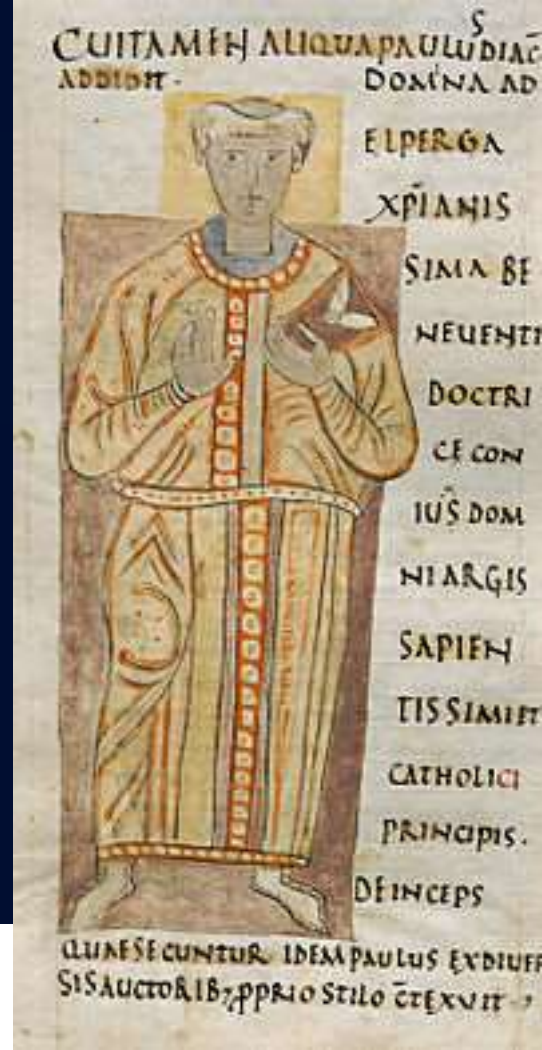 CUITAMEN ALIQUAPAULUSDIAC̄
ADDIDIT· DOMNA AD
ELPERGA
XP̄IANIS
SIMA BE
NEUENTI
DOCTRI
CE CON
IUS DOM
NI ARGIS
SAPIEN
TISSIMI ET
CATHOLICI
PRINCIPIS.
DEINCEPS
QUAESECUNTUR IDEM PAULUS EXDIUER
SISAUCTORIB; PPRIO STILO C̄TEXUIT